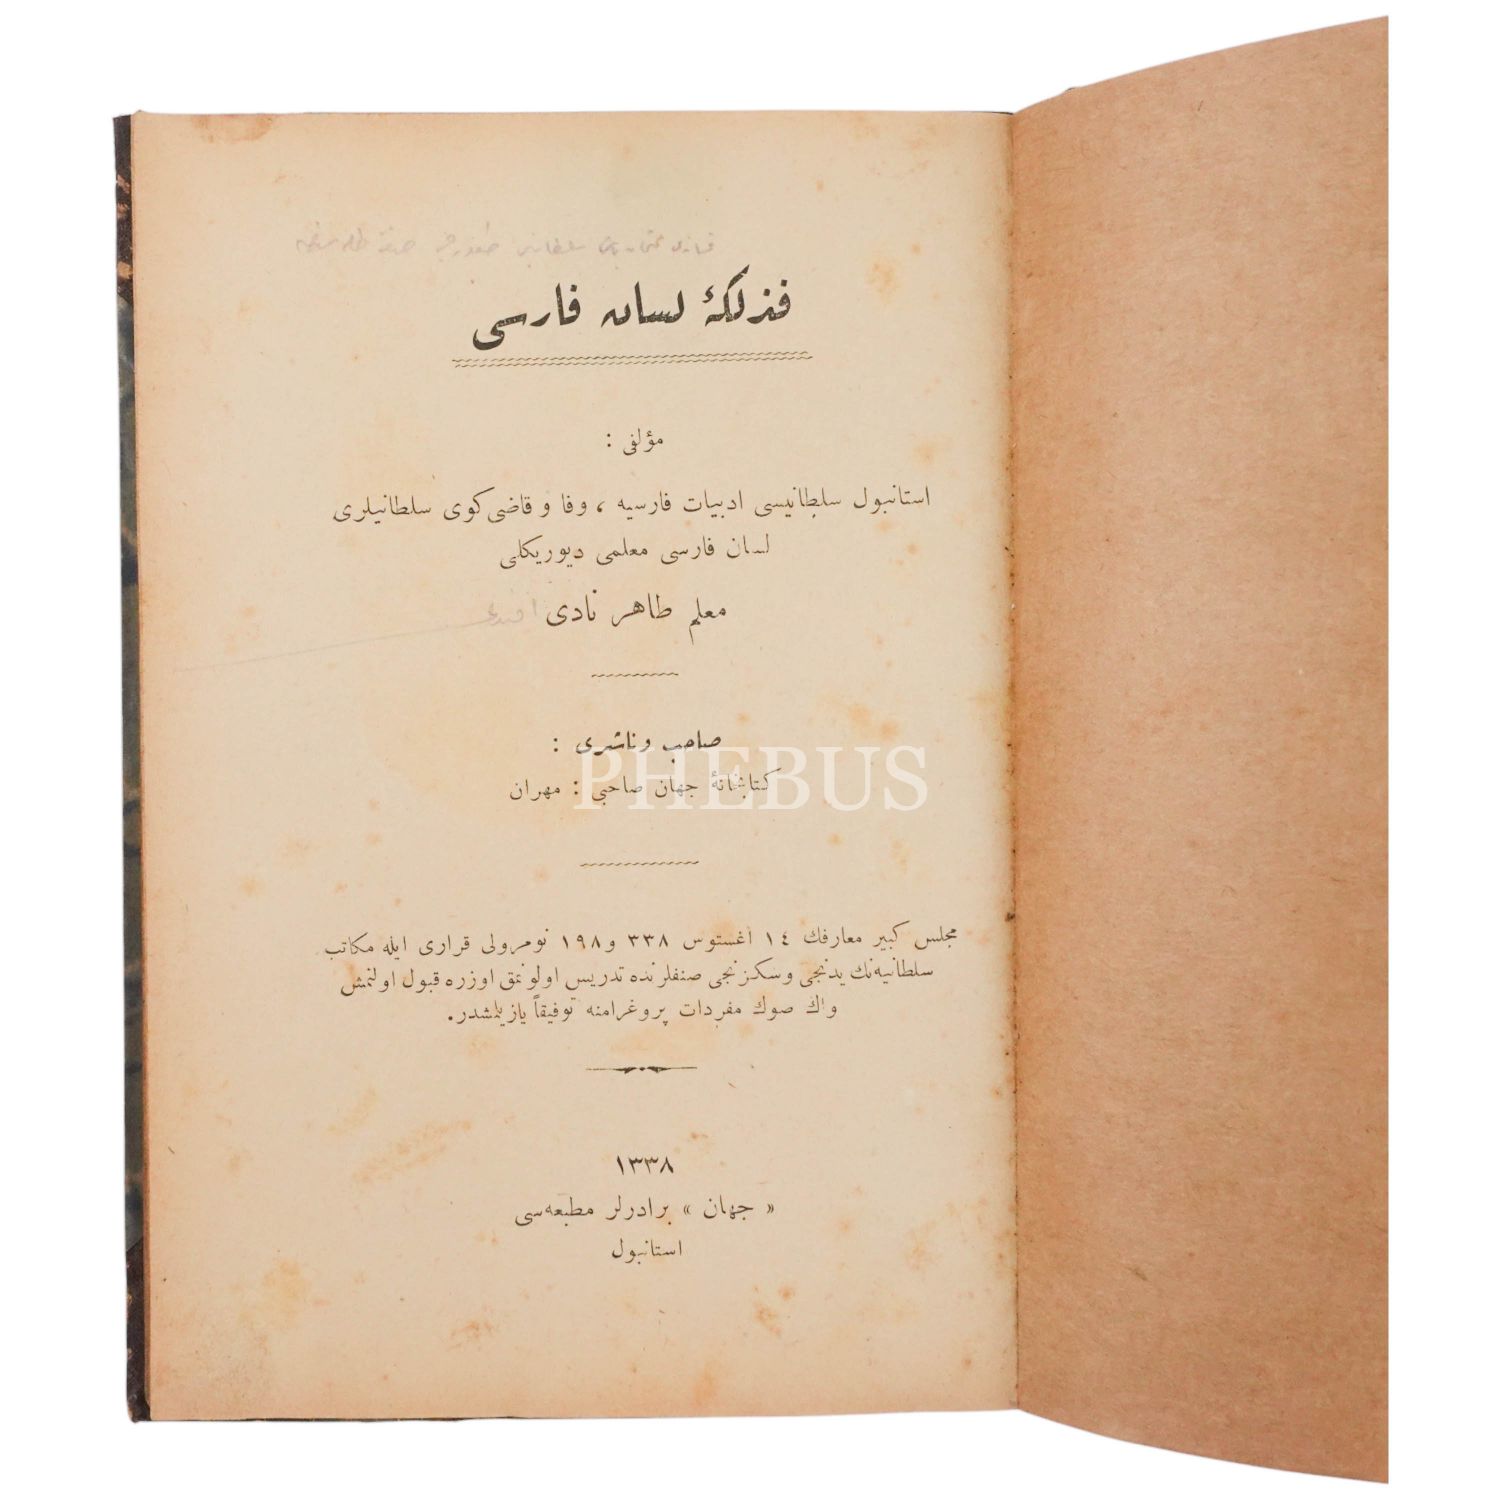 فذلكهٔ لسان فارسی
مؤلفی :
استانبول سلطانیسی ادبیات فارسیه ، وفا و قاضی‌كوی سلطانیلری
لسان فارسی معلمی دیوریكلی
معلم طاهر نادی افندی
صاحب و ناشری :
كتابخانهٔ جهان صاحبی : مهران
PHEBUS
مجلس كبیر معارفك ١٤ اغستوس ٣٣٨ و ١٩٨ نومرولی قراری ایله مكاتب
سلطانیه‌نك یدنجی و سكزنجی صنفلرنده تدریس اولونمق اوزره قبول اولنمش
واك صوك مفردات پروغرامنه توفیقاً یازیلمشدر.
١٣٣٨
« جهان » برادرلر مطبعه‌سی
استانبول